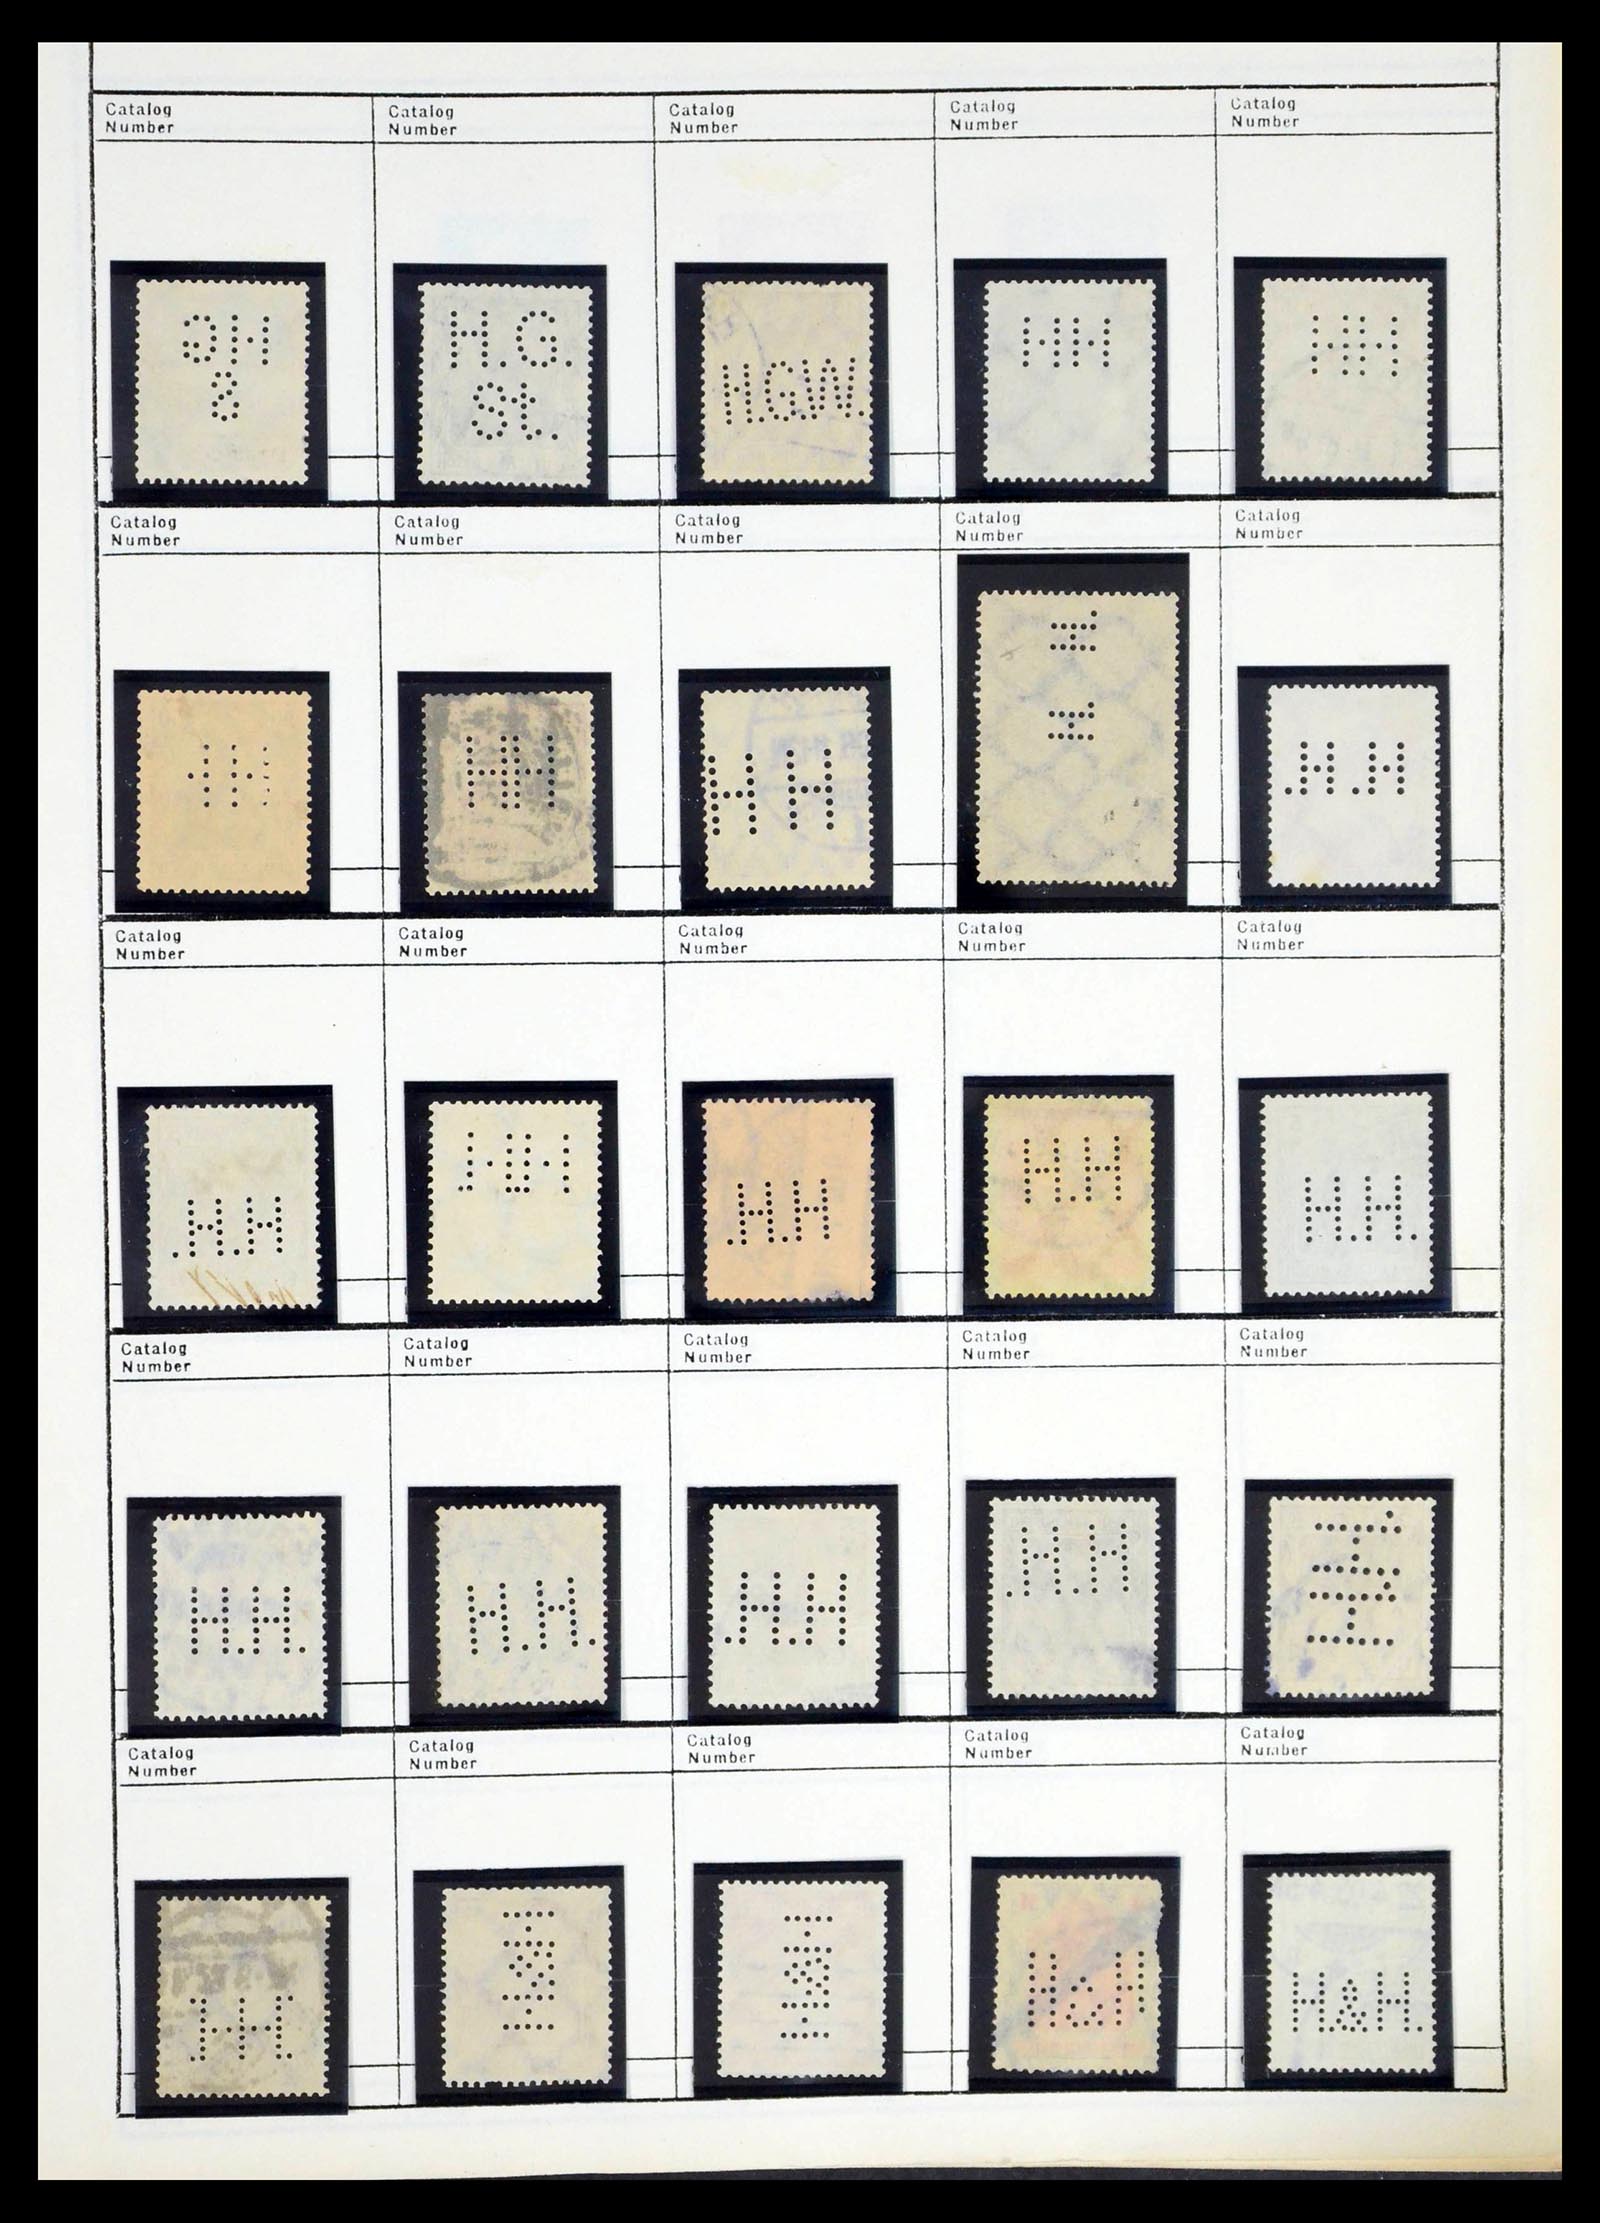 Catalog Number
Catalog Number
Catalog Number
Catalog Number
Catalog Number
HG
8
H.G.
St.
H.G.W.
HH
HH
Catalog Number
Catalog Number
Catalog Number
Catalog Number
Catalog Number
HH
H H
H. H
.H.H
Catalog Number
Catalog Number
Catalog Number
Catalog Number
Catalog Number
.H.H
.H.H
H.H
H.H.
Catalog Number
Catalog Number
Catalog Number
Catalog Number
Catalog Number
H.H.
H.H.
.H.H
.H.H
H.H
Catalog Number
Catalog Number
Catalog Number
Catalog Number
Catalog Number
H&H
H&H
H&H
H&H.